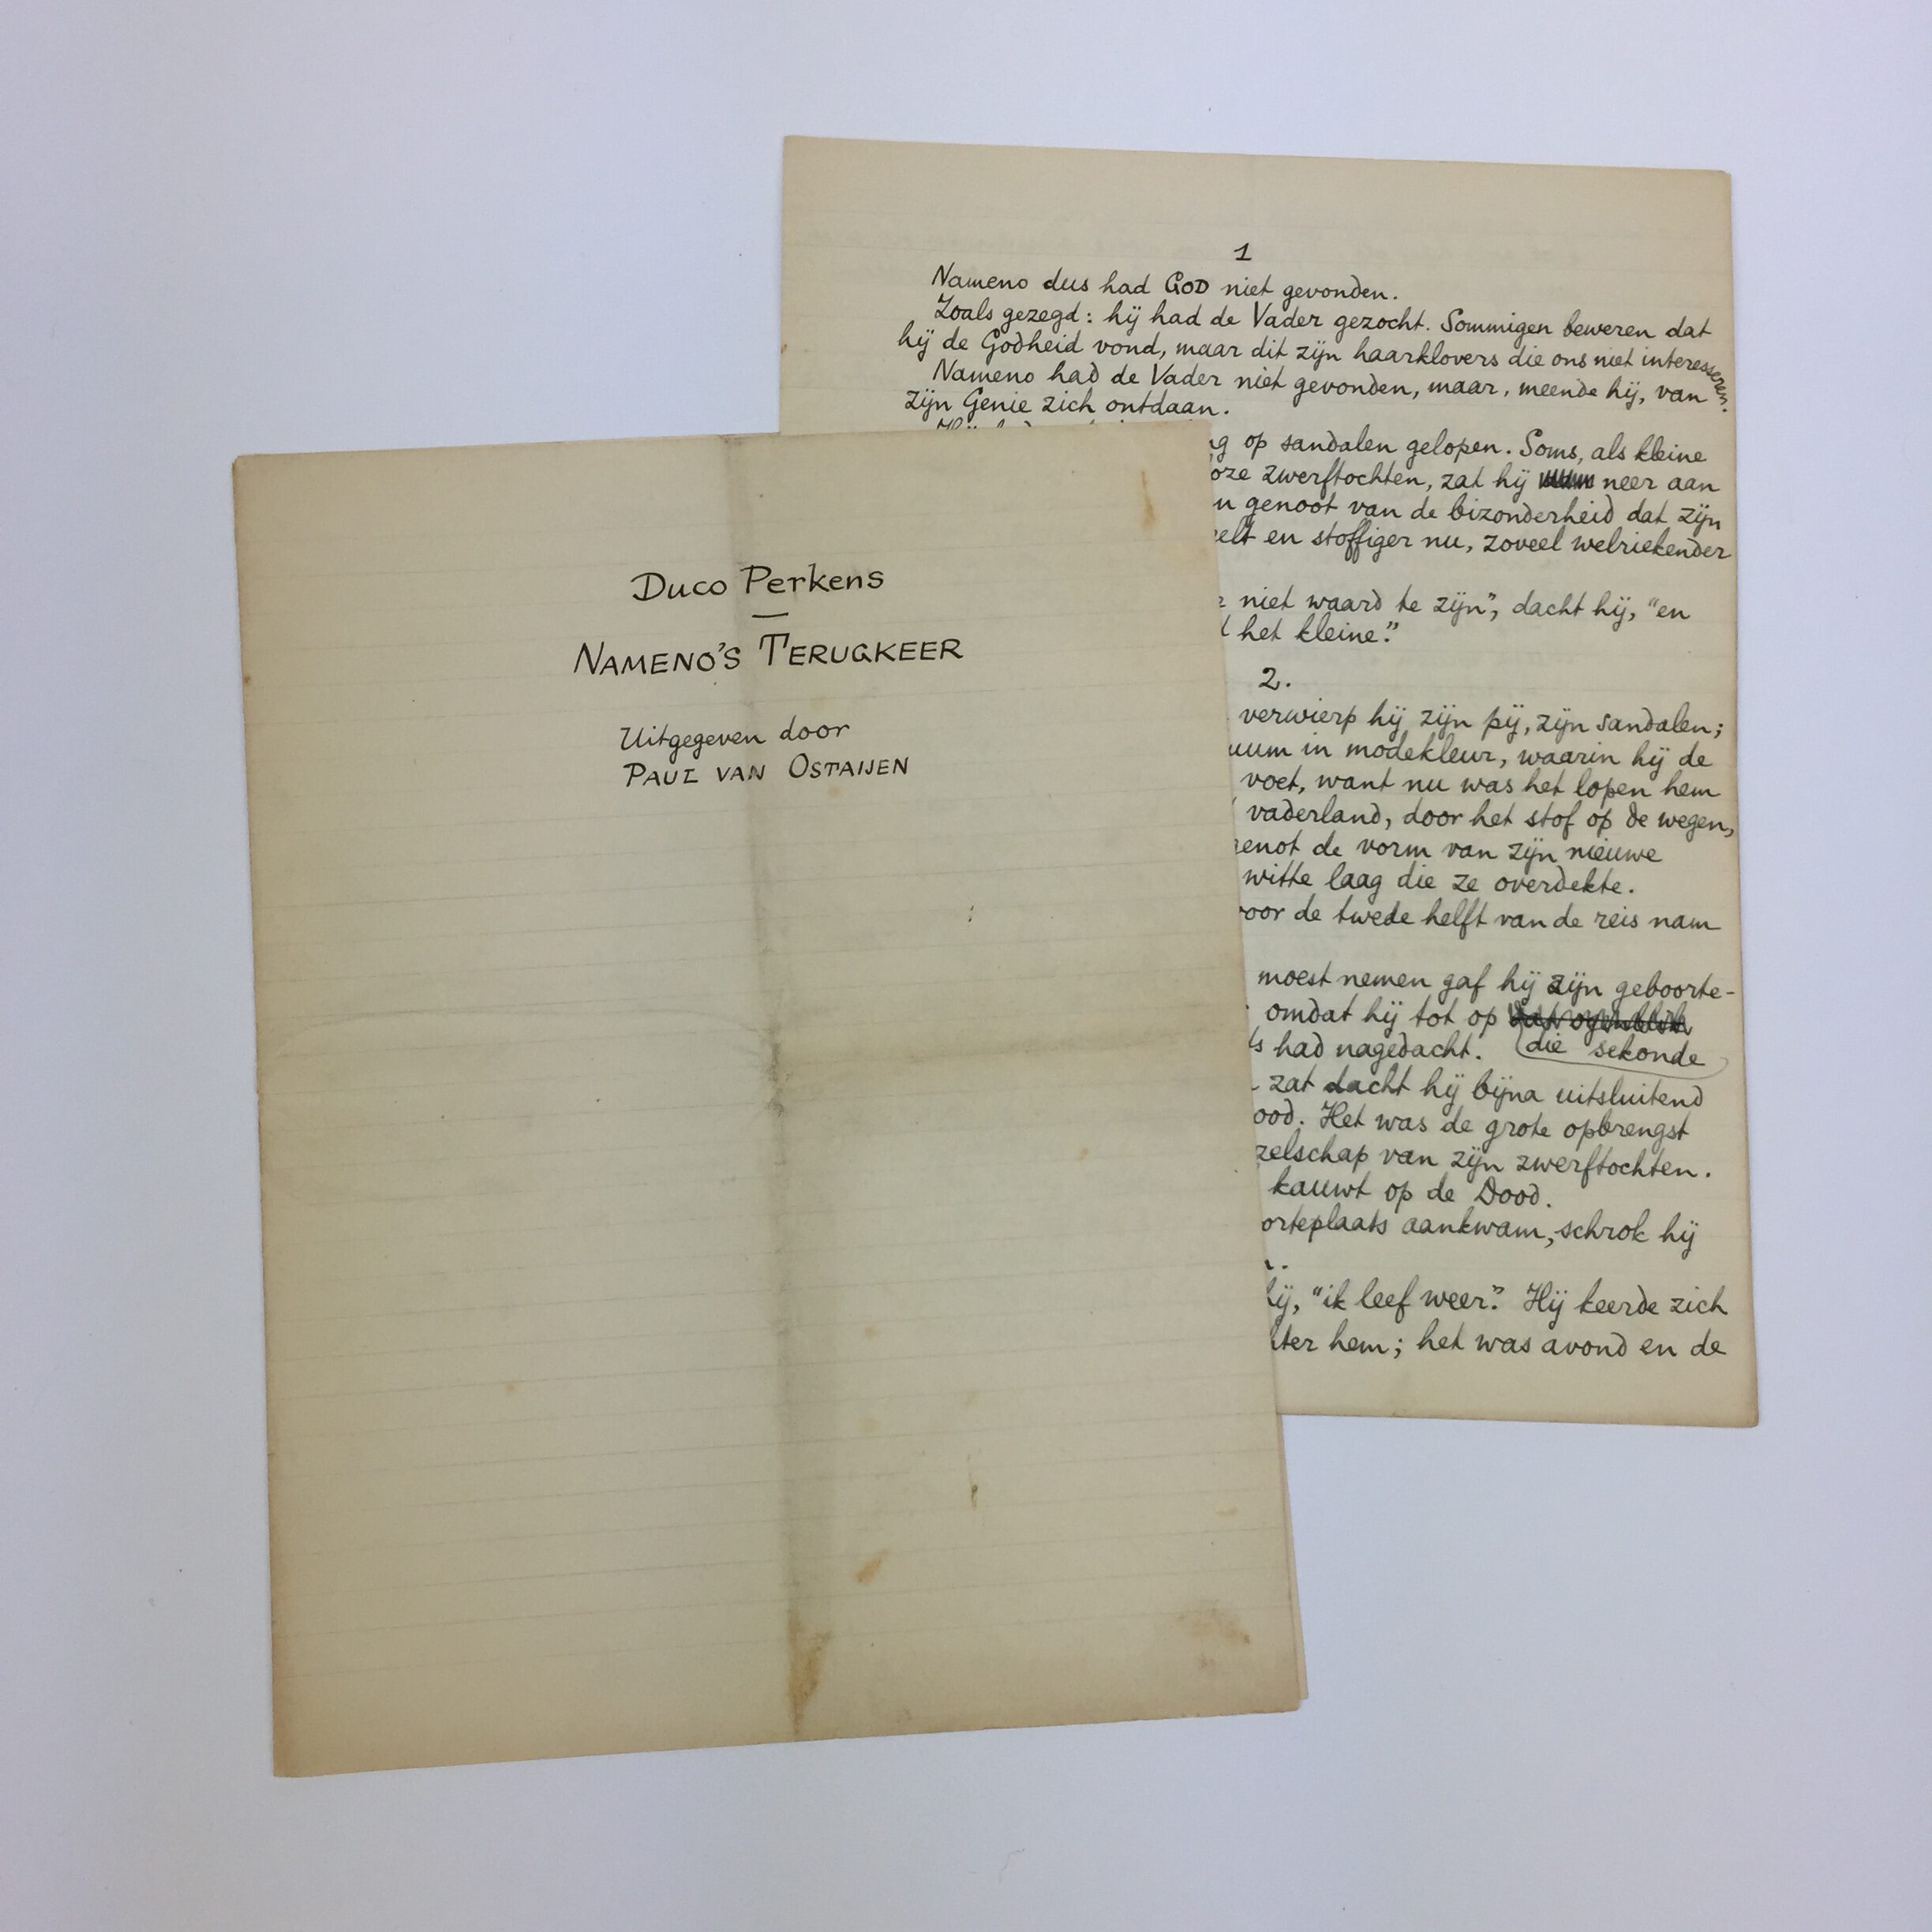 Duco Perkens
—
NAMENO'S TERUGKEER
Uitgegeven door
PAUL VAN OSTAIJEN
1
Nameno dus had GOD niet gevonden.
Zoals gezegd: hij had de Vader gezocht. Sommigen beweren dat
hij de Godheid vond, maar dit zijn haarklovers die ons niet interesseren.
Nameno had de Vader niet gevonden, maar, meende hij, van
zijn Genie zich ontdaan.
op sandalen gelopen. Soms, als kleine
oze zwerftochten, zat hij neer aan
genoot van de bizonderheid dat zijn
en stoffiger nu, zoveel welriekender
niet waard te zijn", dacht hij, "en
het kleine."
2.
verwierp hij zijn pij, zijn sandalen;
uum in modekleur, waarin hij de
voet, want nu was het lopen hem
vaderland, door het stof op de wegen,
genot de vorm van zijn nieuwe
witte laag die ze overdekte.
oor de twede helft van de reis nam
moest nemen gaf hij zijn geboorte-
omdat hij tot op dat ogenblik
had nagedacht. die sekonde
zat dacht hij bijna uitsluitend
ood. Het was de grote opbrengst
zelschap van zijn zwerftochten.
kauwt op de Dood.
orteplaats aankwam, schrok hij
hij, "ik leef weer." Hij keerde zich
hter hem; het was avond en de